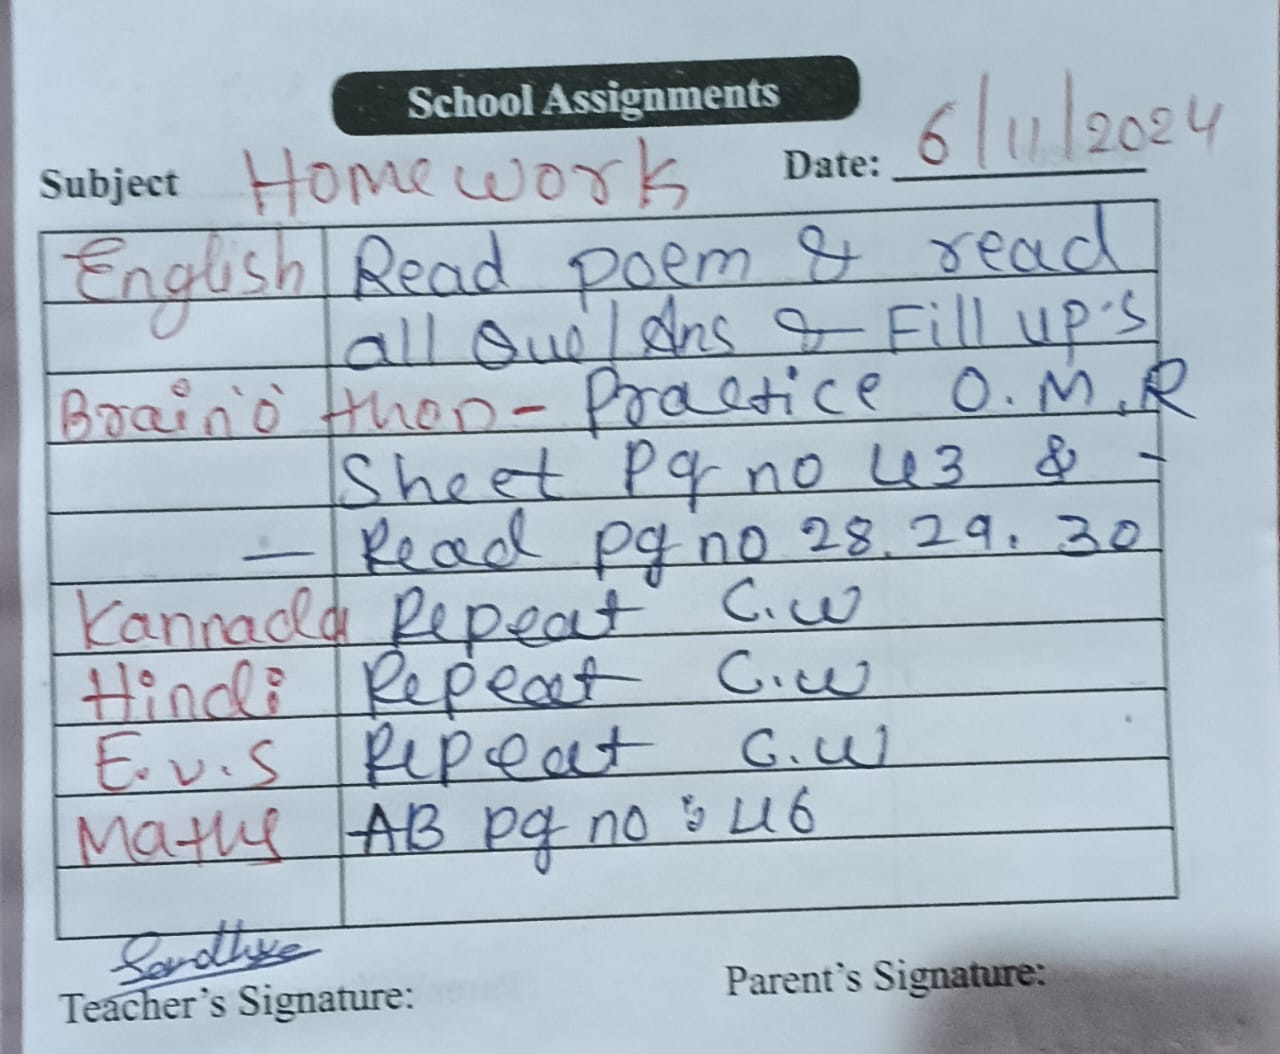 School Assignments
Subject Homework Date: 6/11/2024
English Read poem & read
all Que/Ans & Fill up's
Brain'o'thon - Practice O.M.R
Sheet Pg no 43 & -
- Read pg no 28. 29. 30
Kannada Repeat C.W
Hindi Repeat C.W
E.V.S Repeat C.W
Maths AB pg no : 46
Teacher's Signature: Parent's Signature: